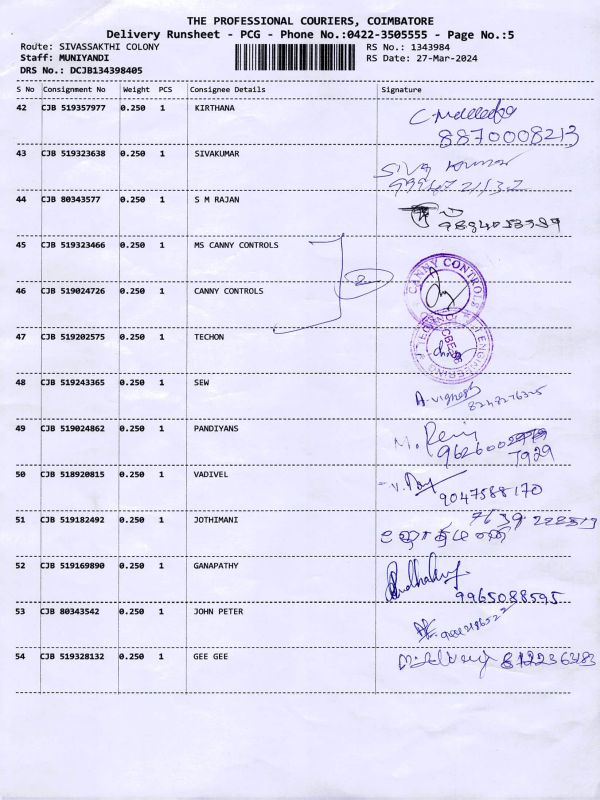 THE PROFESSIONAL COURIERS, COIMBATORE
Delivery Runsheet - PCG - Phone No.:0422-3505555 - Page No.:5
Route: SIVASSAKTHI COLONY RS No.: 1343984
Staff: MUNIYANDI RS Date: 27-Mar-2024
DRS No.: DCJB134398405
S No Consignment No Weight PCS Consignee Details Signature
42 CJB 519357977 0.250 1 KIRTHANA
8870008213
43 CJB 519323638 0.250 1 SIVAKUMAR Siva Kumar
44 CJB 80343577 0.250 1 S M RAJAN
45 CJB 519323466 0.250 1 MS CANNY CONTROLS
2
CANNY CONTROLS
46 CJB 519024726 0.250 1 CANNY CONTROLS
47 CJB 519202575 0.250 1 TECHON
48 CJB 519243365 0.250 1 SEW A. Vignesh
49 CJB 519024862 0.250 1 PANDIYANS
7929
50 CJB 518920815 0.250 1 VADIVEL
9047588170
51 CJB 519182492 0.250 1 JOTHIMANI
52 CJB 519169890 0.250 1 GANAPATHY
9965088595
53 CJB 80343542 0.250 1 JOHN PETER
54 CJB 519328132 0.250 1 GEE GEE